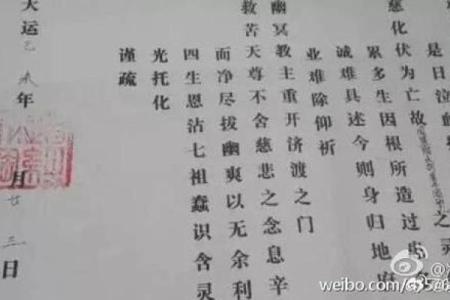 是日泣血
慈化伏为亡故之灵
累多生因根所造过
诚难具述今则身归地府
业难除仰祈
幽冥教主重开济渡之门
救苦天尊不舍慈悲之念息辛
面净尽拔幽爽以无余利
四生恩沾七祖蠢识含灵
光托化
谨疏
大运年月廿三日
weibo.com/